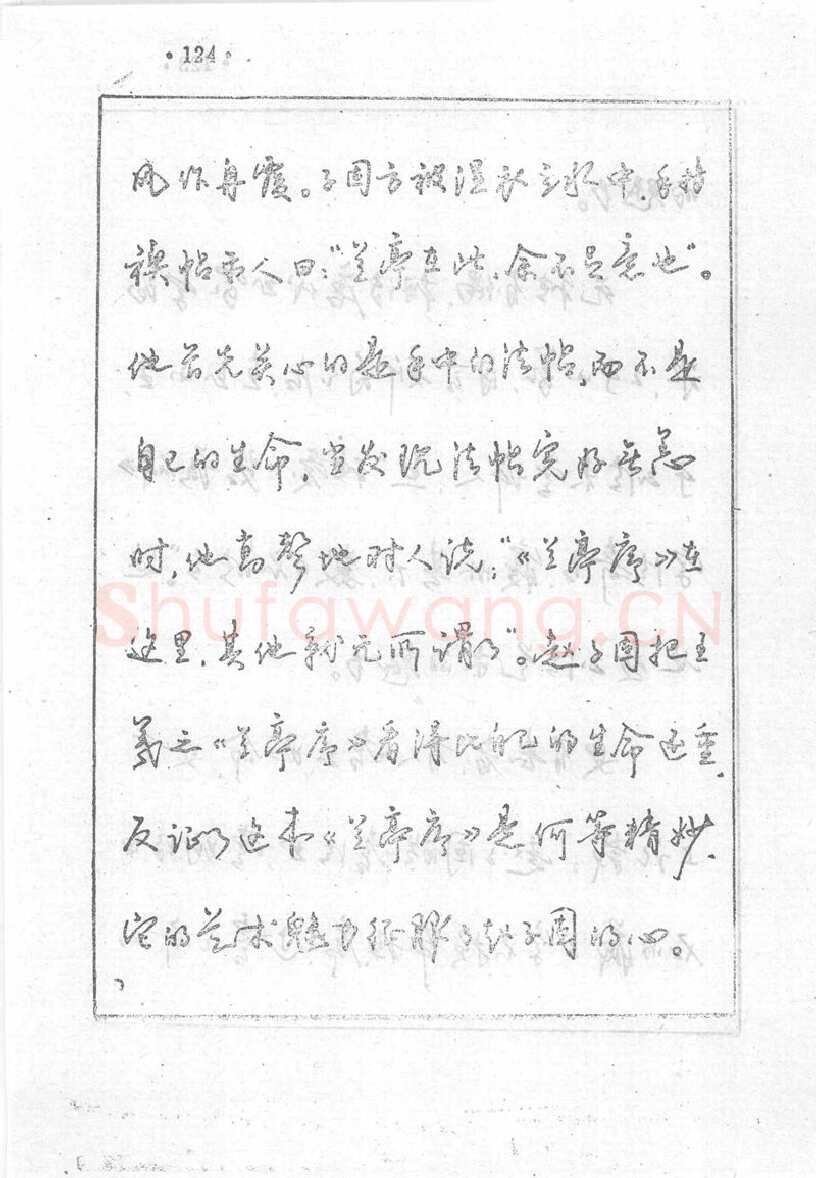 ·124·
风作舟覆。子固方被湿衣立水中，手持
禊帖示人曰：“兰亭在此，余不足意也”。
他首先关心的是手中的法帖，而不是
自己的生命，当发现法帖完好无恙
时，他高声地对人说：“《兰亭序》在
这里，其他就无所谓了”。赵子固把王
羲之《兰亭序》看得比自己的生命还重，
反证了这本《兰亭序》是何等精妙，
它的艺术魅力征服了赵子固的心。
Shufawang.CN